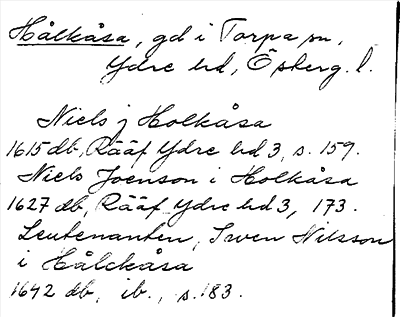 Hålkåsa, gd i Torpa sn,
Ydre hd, Ösberg. l.
Niels j Holkåsa
1615 db, Rääf Ydre hd 3, s. 159.
Niels Joenson i Holkåsa
1627 db, Rääf Ydre hd 3, 173.
Leutenanten, Swen Nilsson
i Hålckåsa
1642 db, ib., s. 183.